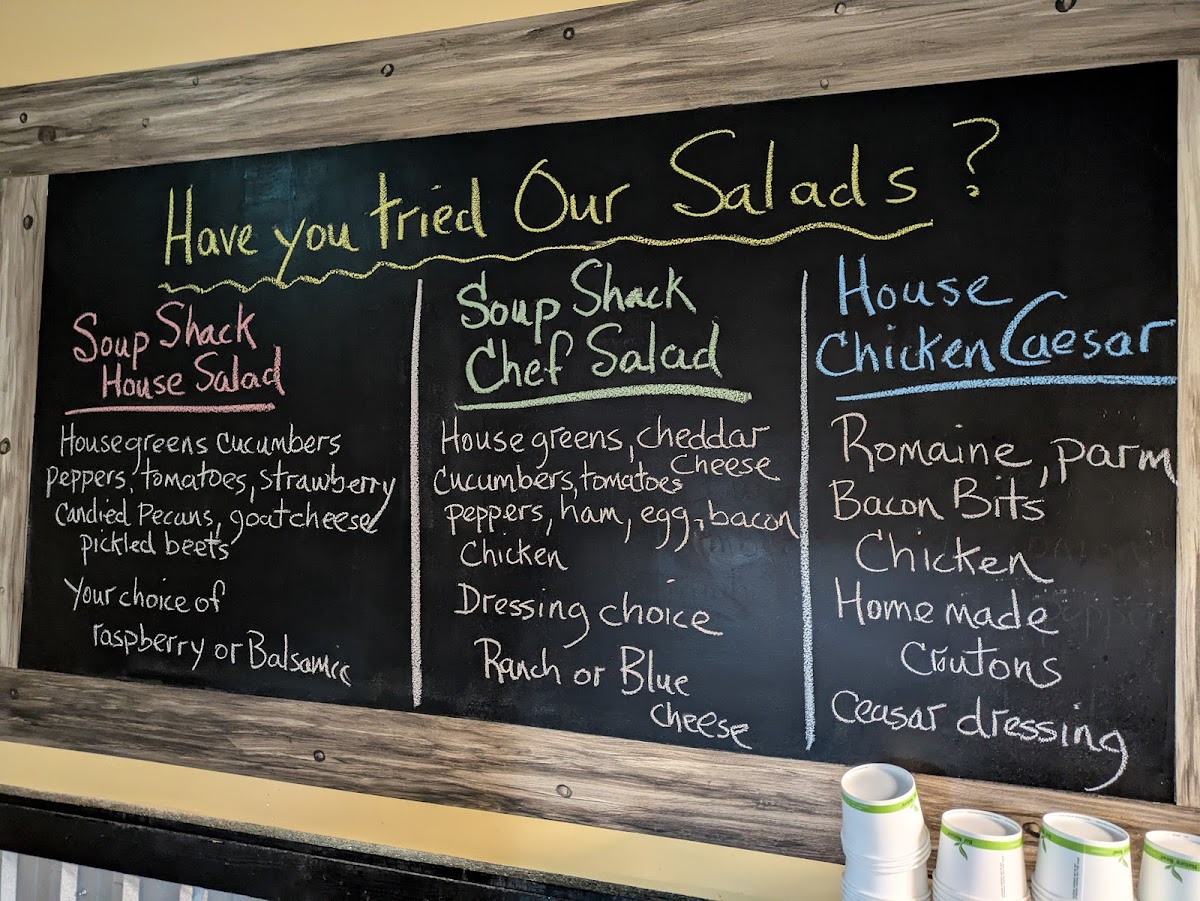 Have you tried Our Salads?
Soup Shack
House Salad
Housegreens cucumbers
peppers, tomatoes, strawberry
Candied Pecans, goat cheese
pickled beets
Your choice of
raspberry or Balsamic
Soup Shack
Chef Salad
House greens, cheddar
Cheese
cucumbers, tomatoes
peppers, ham, egg, bacon
Chicken
Dressing choice
Ranch or Blue
cheese
House
Chicken Caesar
Romaine, parm
Bacon Bits
Chicken
Home made
Croutons
Ceasar dressing